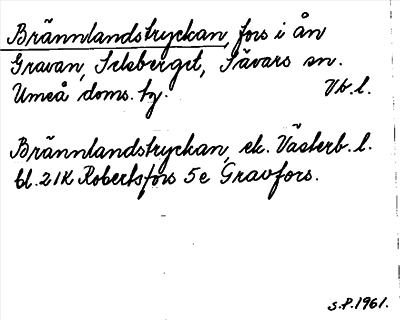 Brännlandstryckan, fors i ån
Gravan, Selsberget, Sävars sn.
Umeå doms. hg. Vb. l.
Brännlandstryckan, ek. Västerb. l.
bl. 21K Robertsfors 5e Gravfors.
S.P. 1961.